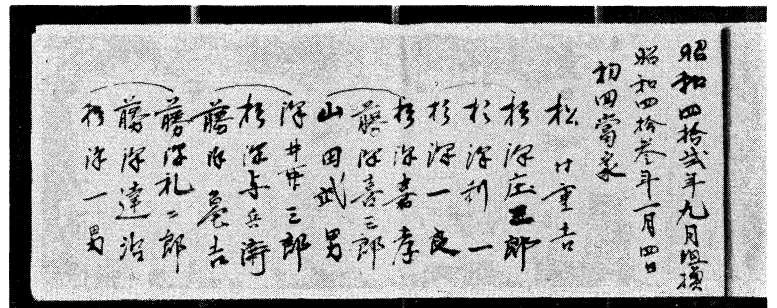 昭和四拾弐年九月組換
昭和四拾参年一月四日
初回當家
松村重吉
松沢庄五郎
杉沢利一
杉沢一良
杉沢喜孝
藤沢喜三郎
山田武男
沢井安三郎
杉沢与兵衛
藤沢亀吉
藤沢礼二郎
藤沢達治
杉沢一男